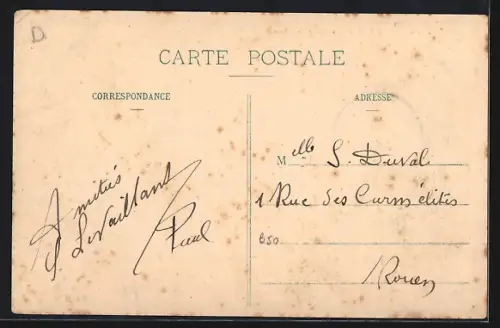 D
CARTE POSTALE
CORRESPONDANCE
ADRESSE
Amitiés
Levaillant
Paul
Melle S. Duval
1 Rue des Carmélites
B50
Rouen